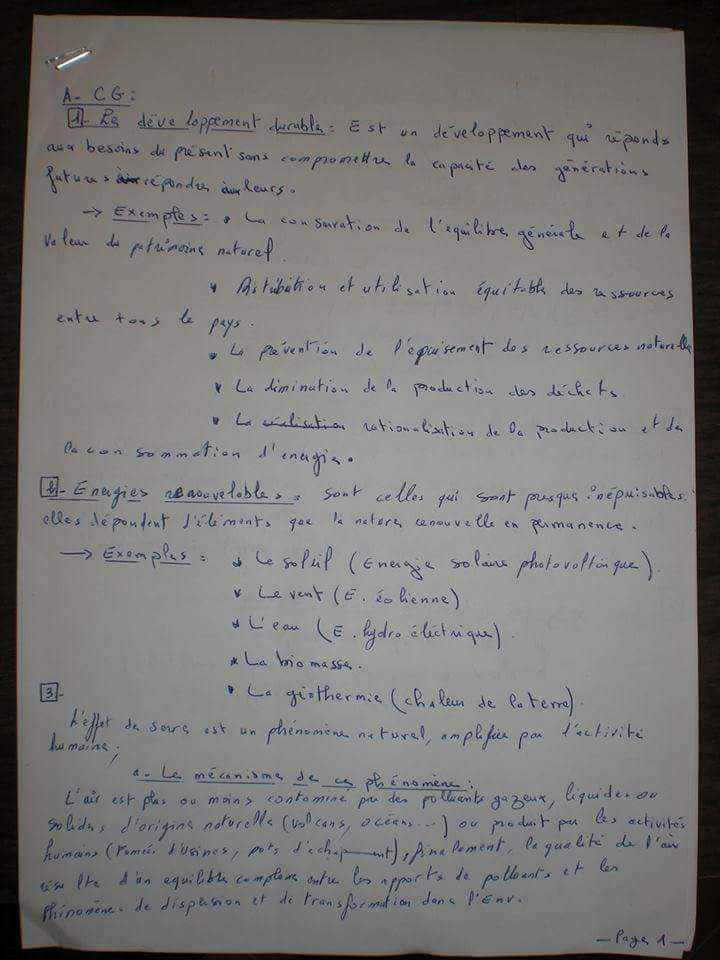 A- CG:
1- Le développement durable: Est un développement qui réponds
aux besoins du présent sans compromettre la capacité des générations
futures répondre leurs.
→ Exemples: • La conservation de l'équilibre générale et de la
valeur du patrimoine naturel.
• Distribution et utilisation équitable des ressources
entre tous le pays.
• La prévention de l'épuisement des ressources naturelle
• La diminution de la production des déchets.
• La réalisation rationalisation de la production et de
la consommation d'energie.
2- Energies renouvelables: sont celles qui sont presque inépuisables.
elles dépendent d'éléments que la nature renouvelle en permanence.
→ Exemples: • Le soleil (Energie solaire photovoltaïque)
• Le vent (E. éolienne)
• L'eau (E. hydro électrique).
• La biomasse.
3- • La géothermie (chaleur de la terre).
L'effet de serre est un phénomène naturel, amplifiée par l'activité
humaine;
a- Le mécanisme de ce phénomène:
L'air est plus ou moins contaminé par des polluants gazeux, liquides ou
solides d'origine naturelle (volcans, océans...) ou produit par les activités
humains (fumée d'usines, pots d'échappement), finalement, la qualité de l'air
résulte d'un equilibre complexe entre les apports de polluants et les
phénomènes de dispersion et de transformation dans l'Env.
— Page 1 —